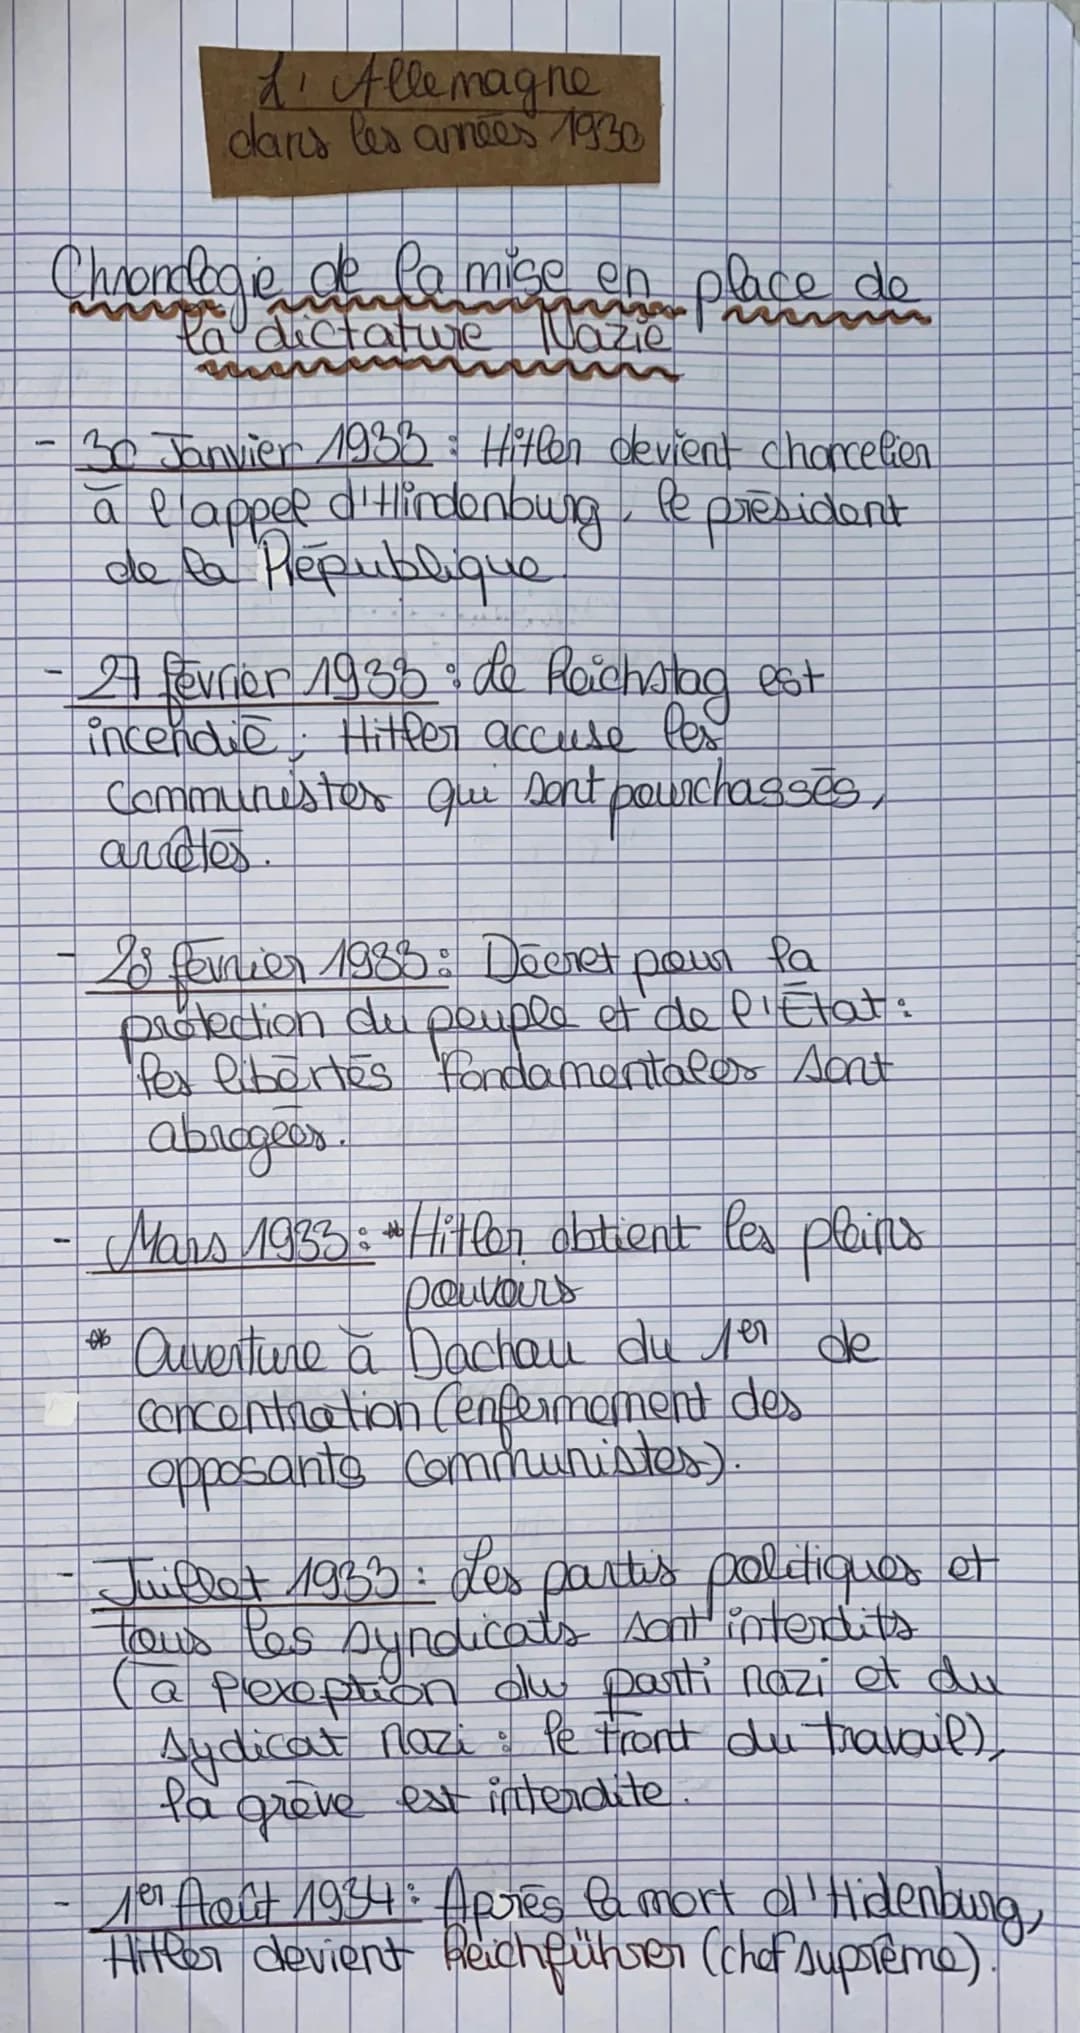 L'Allemagne
dans les années 1930
Chronologie de la mise en place de
la dictature Nazie
- 30 Janvier 1933 : Hitler devient chancelier
à l'appel d'Hindenburg, le président
de la République.
- 27 février 1933 : Le Reichstag est
incendié ; Hitler accuse les
communistes qui sont pourchassés,
arrêtés.
- 28 février 1933 : Décret pour la
protection du peuple et de l'État :
les libertés fondamentales sont
abrogées.
- Mars 1933 : * Hitler obtient les pleins
pouvoirs
* Ouverture à Dachau du 1er de
concentration (enfermement des
opposants communistes).
- Juillet 1933 : Les partis politiques et
tous les syndicats sont interdits
(à l'exeption du parti nazi et du
sydicat nazi : le front du travail),
la grève est interdite.
- 1er Août 1934 : Après la mort d'Hidenburg,
Hitler devient Reichführer (chef suprême).